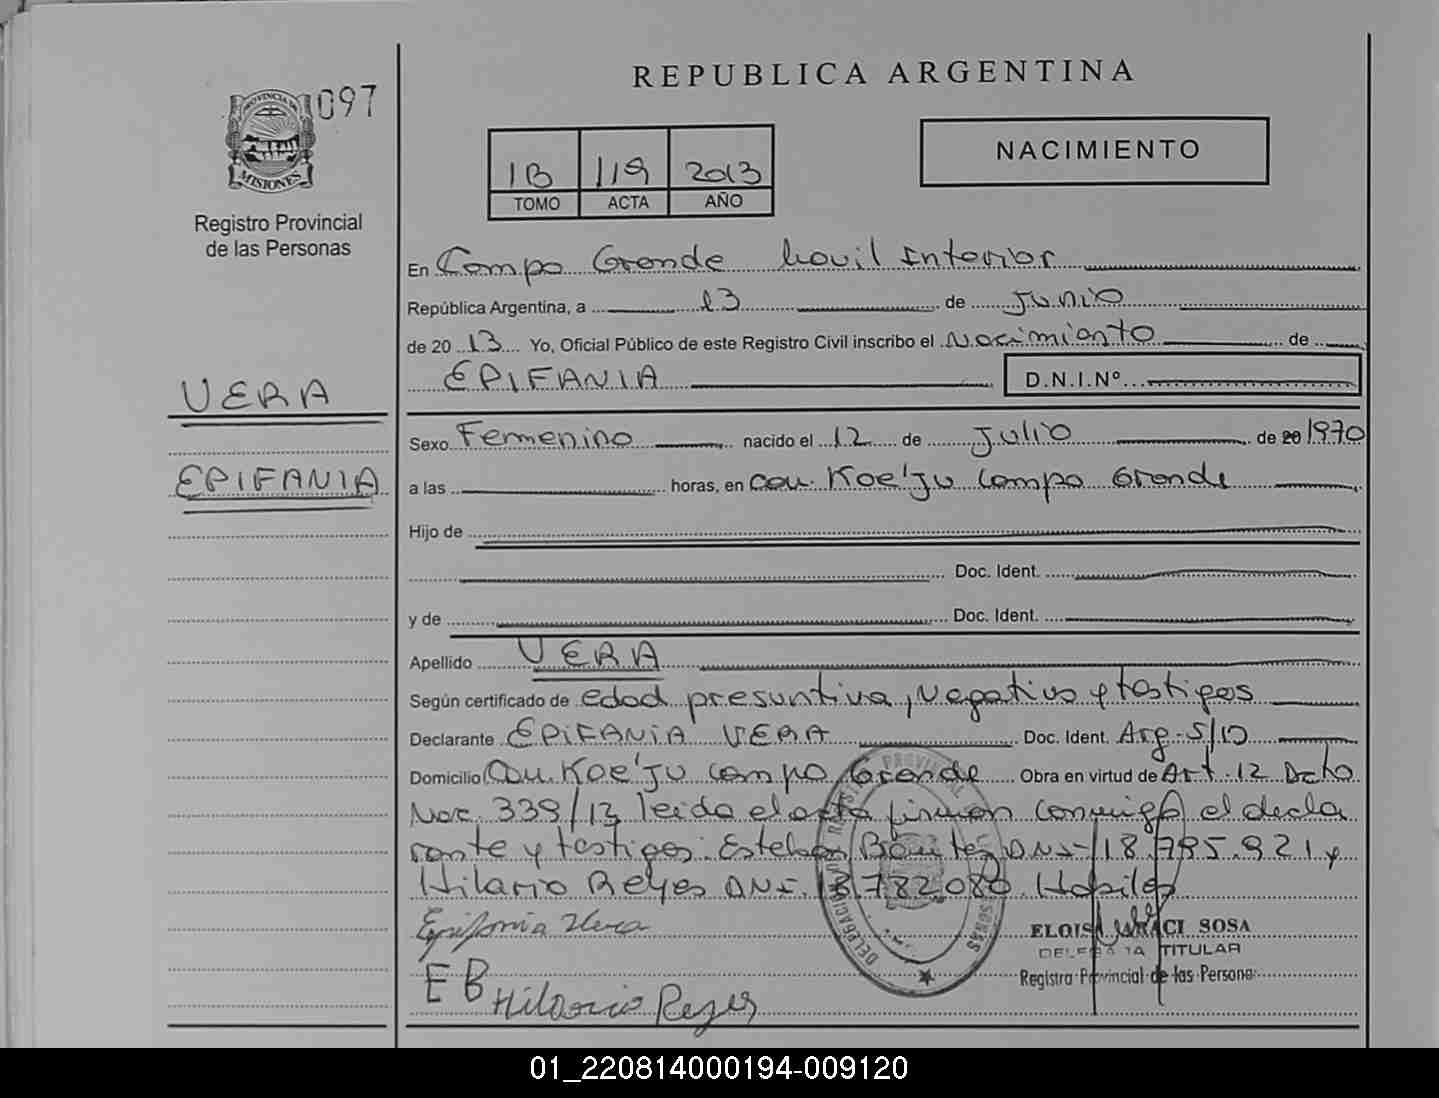 REPUBLICA ARGENTINA
097
PROVINCIA DE
MISIONES
Registro Provincial
de las Personas
1B 119 2013
TOMO ACTA AÑO
NACIMIENTO
En Campo Grande Movil Interior
República Argentina, a 13 de Junio
de 20 13 Yo, Oficial Público de este Registro Civil inscribo el Nacimiento de
EPIFANIA D.N.I.Nº
VERA
EPIFANIA
Sexo Femenino nacido el 12 de Julio de 20 1970
a las horas, en Com. Koe'Ju Campo Grande
Hijo de
Doc. Ident.
y de Doc. Ident.
Apellido VERA
Según certificado de edad presuntiva, Negativo y testigos
Declarante EPIFANIA VERA Doc. Ident. Arg. S/D
Domicilio Com. Koe'Ju Campo Grande Obra en virtud de Art. 12 Dcto
Nac. 339/13 leida el acta firman conmigo el decla
rante y testigos. Esteban Benitez DNI 18.795.921 y
Hilario Reyes DNI. 18.782.080 Habiles
Epifania Vera
ELOISA SOSA
TITULAR
Registro Provincial de las Personas
EB Hilario Reyes
01_220814000194-009120